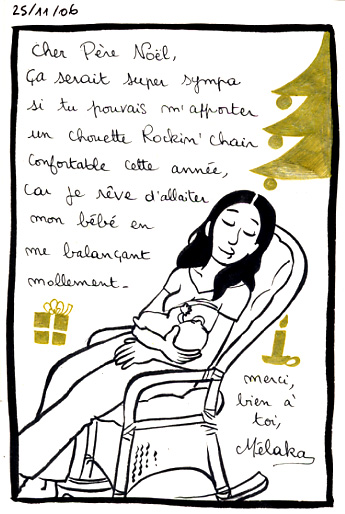 25/11/06
Cher Père Noël,
Ça serait super sympa
si tu pouvais m'apporter
un chouette Rockin' Chair
confortable cette année,
car je rêve d'allaiter
mon bébé en
me balançant
mollement.
merci,
bien à
toi,
Mélaka